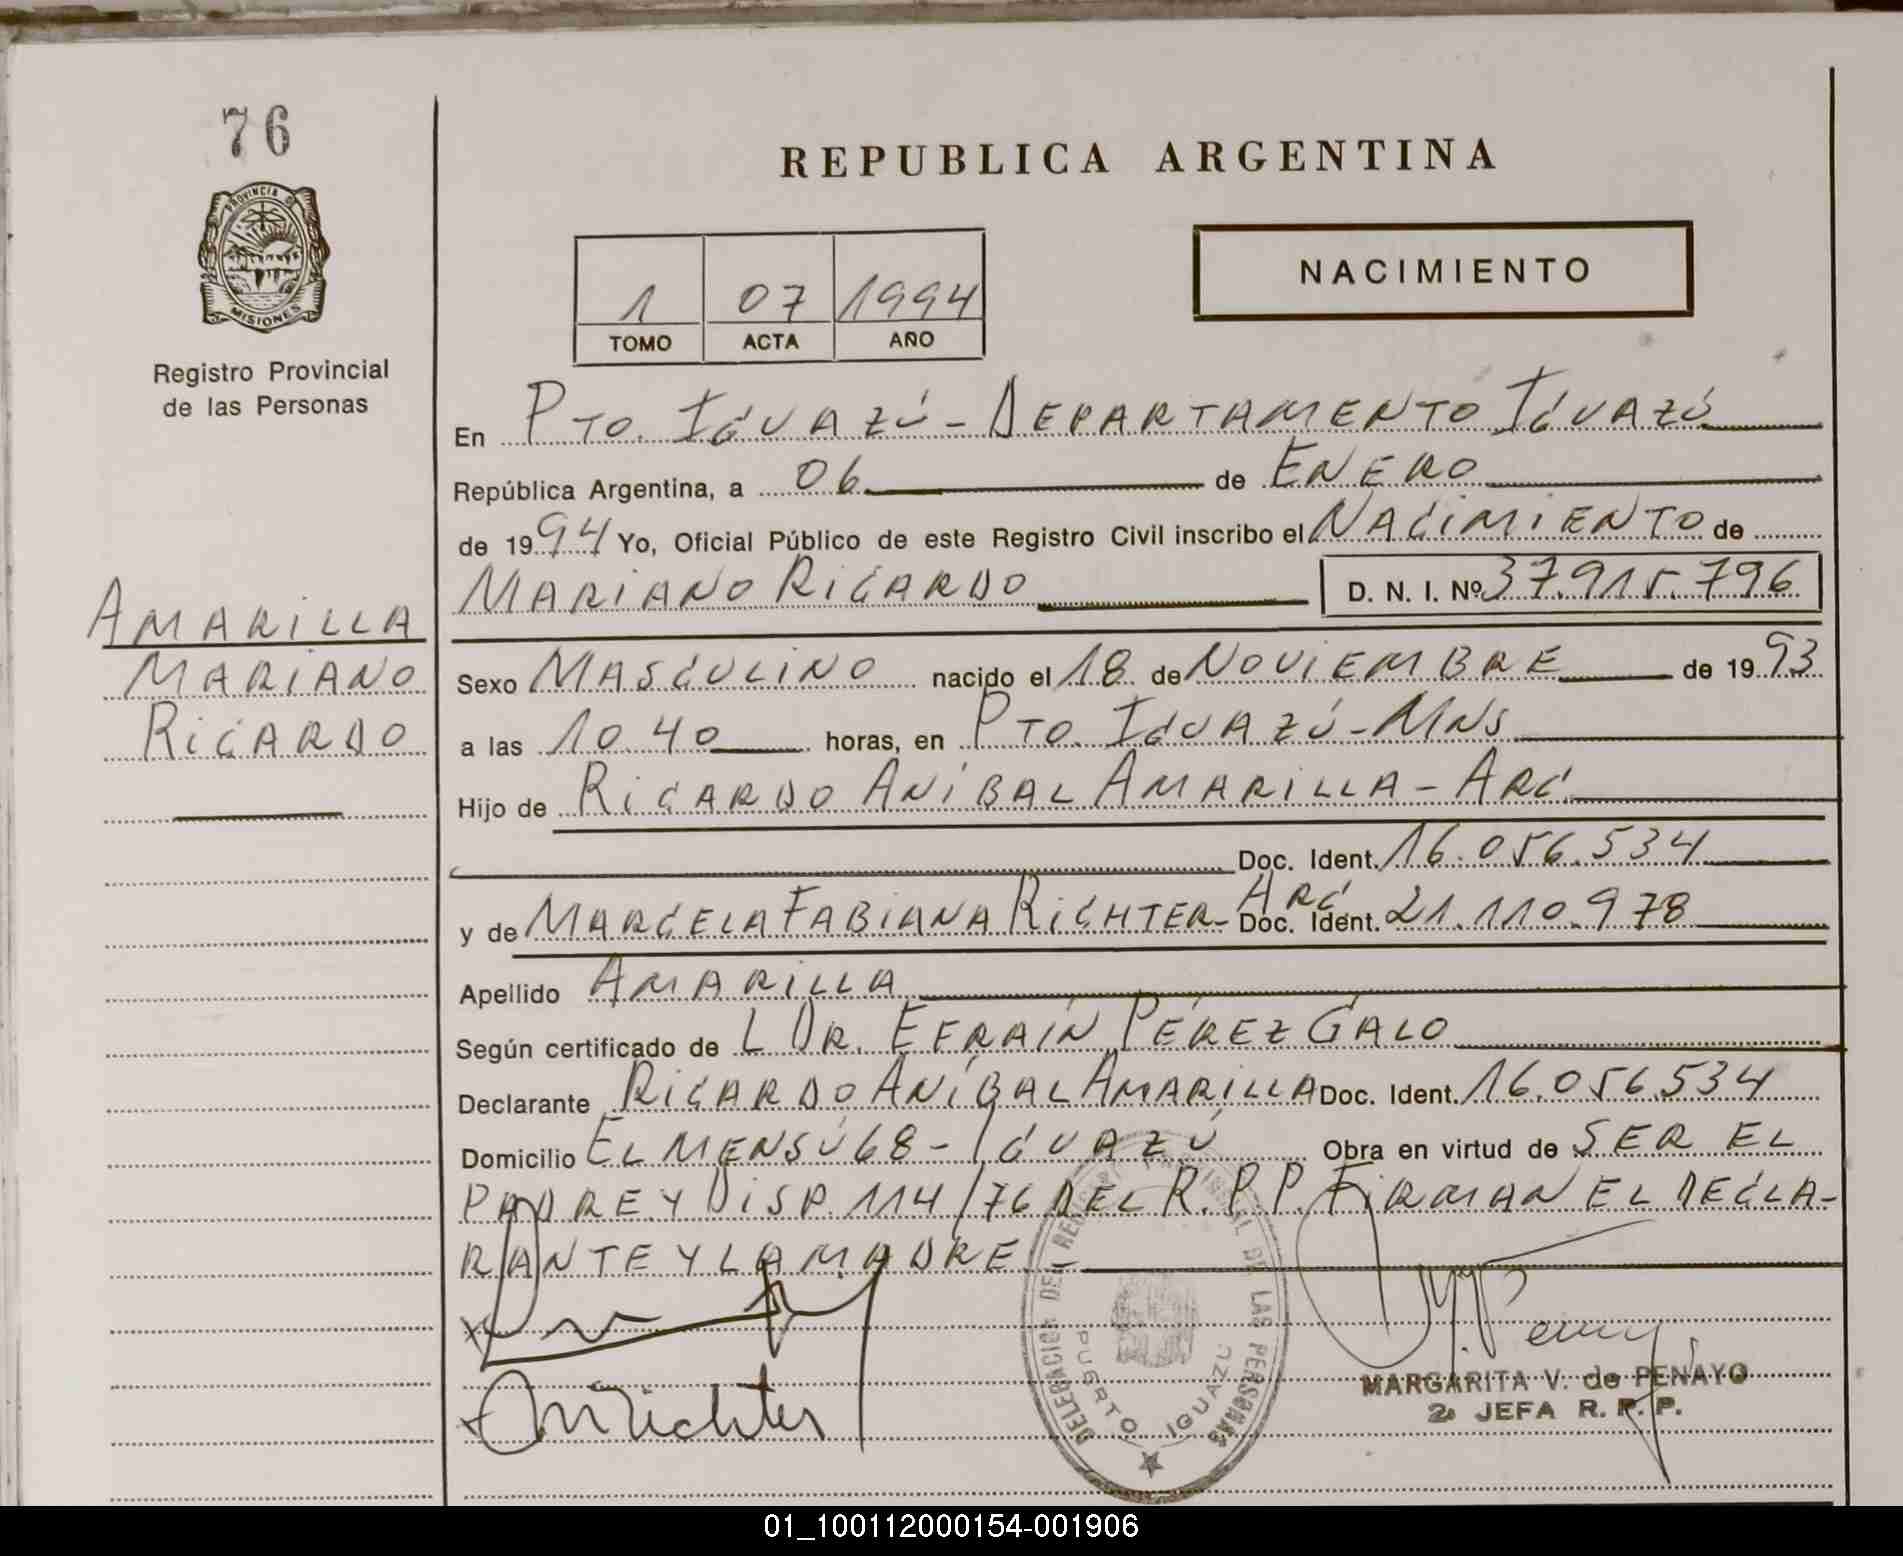 76
REPUBLICA ARGENTINA
PROVINCIA DE
MISIONES
Registro Provincial
de las Personas
1 07 1994
TOMO ACTA AÑO
NACIMIENTO
En PTO. IGUAZÚ - DEPARTAMENTO IGUAZÚ
República Argentina, a 06 de ENERO
de 1994 Yo, Oficial Público de este Registro Civil inscribo el NACIMIENTO de
MARIANO RICARDO D. N. I. Nº 37.915.796
AMARILLA
MARIANO
RICARDO
Sexo MASCULINO nacido el 18 de NOVIEMBRE de 1993
a las 10.40 horas, en PTO. IGUAZÚ - MNS
Hijo de RICARDO ANÍBAL AMARILLA - ARG.
Doc. Ident. 16.056.534
y de MARCELA FABIANA RICHTER - ARG. Doc. Ident. 21.110.978
Apellido AMARILLA
Según certificado de L DR. EFRAÍN PÉREZ GALO
Declarante RICARDO ANÍBAL AMARILLA Doc. Ident. 16.056.534
Domicilio EL MENSÚ 68 - IGUAZÚ Obra en virtud de SER EL
PADRE Y DISP. 114/76 DEL R. P. P. FIRMAN EL DECLA-
RANTE Y LA MADRE. -
DELEGACION DEL REGISTRO PROVINCIAL DE LAS PERSONAS
PUERTO IGUAZU
Richter
MARGARITA V. de PENAYO
2a JEFA R. P. P.
01_100112000154-001906